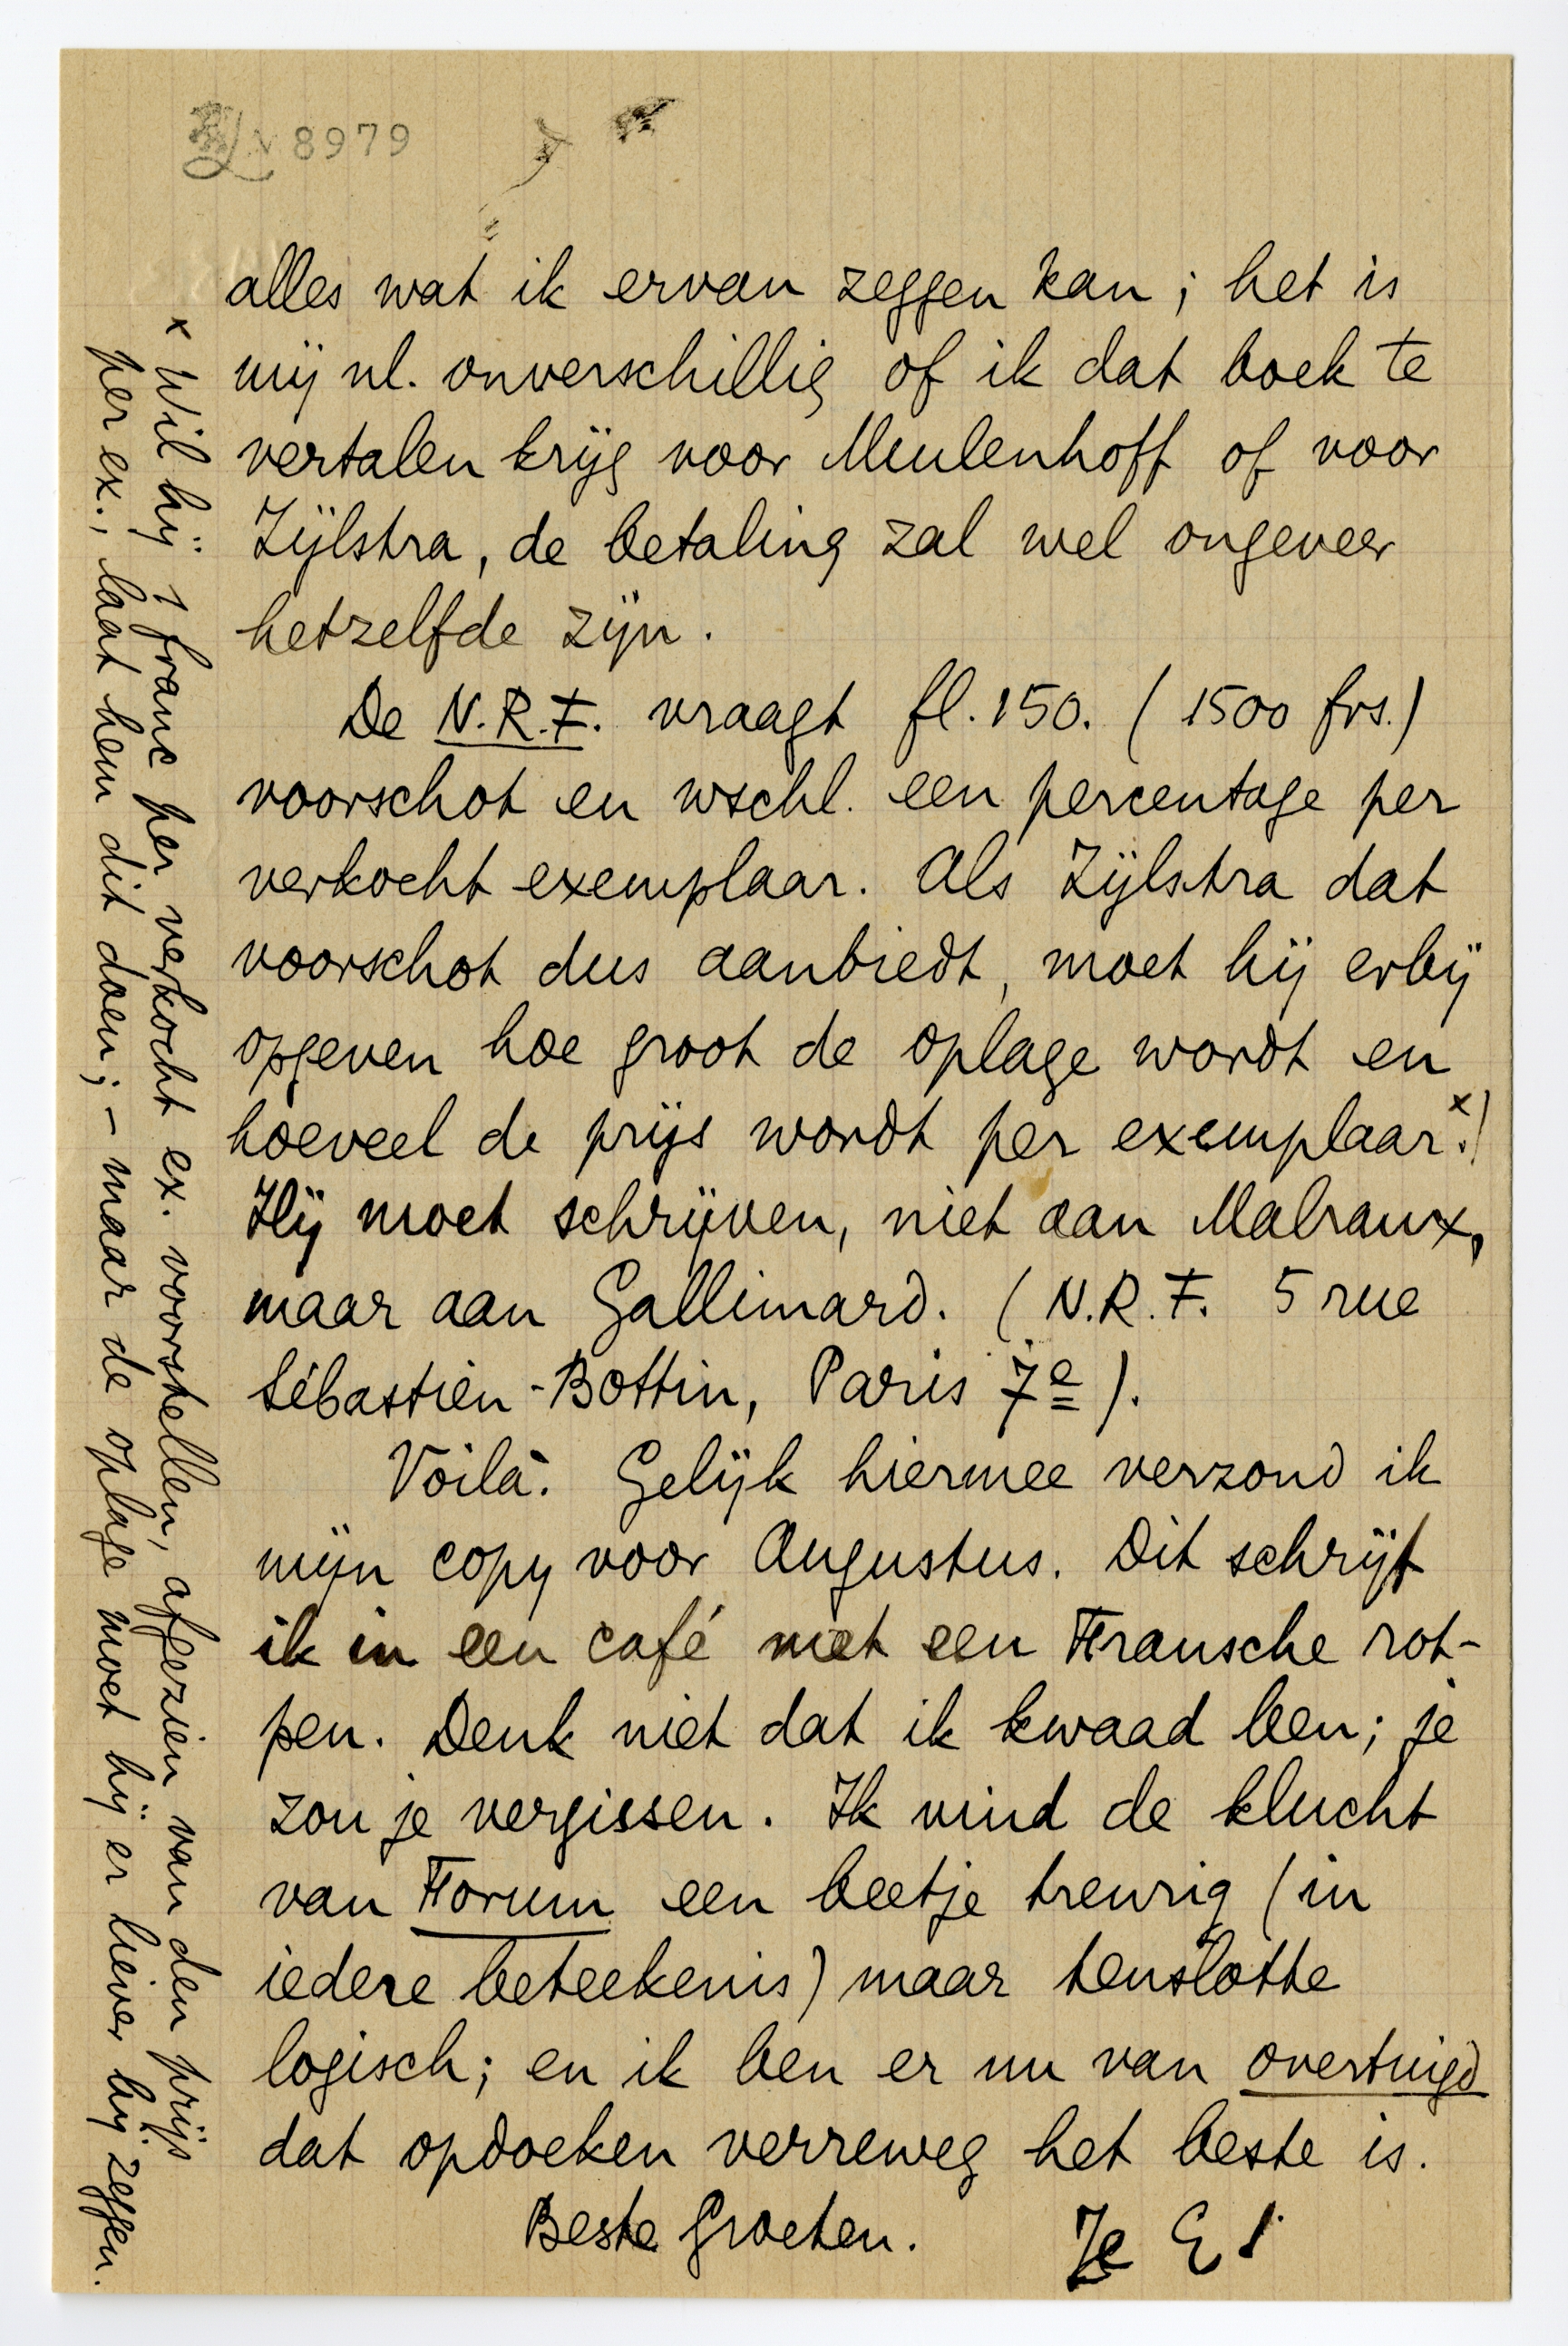 8979
alles wat ik ervan zeggen kan; het is
mij nl. onverschillig of ik dat boek te
vertalen krijg voor Meulenhoff of voor
Zijlstra, de betaling zal wel ongeveer
hetzelfde zijn.
De N.R.F. vraagt fl. 150. (1500 frs.)
voorschot en wschl. een percentage per
verkocht exemplaar. Als Zijlstra dat
voorschot dus aanbiedt, moet hij erbij
opgeven hoe groot de oplage wordt en
hoeveel de prijs wordt per exemplaar.x)
Hij moet schrijven, niet aan Malraux,
maar aan Gallimard. (N.R.F. 5 rue
Sébastien-Bottin, Paris 7e).
Voilà. Gelijk hiermee verzond ik
mijn copy voor Augustus. Dit schrijf
ik in een café met een Fransche rot-
pen. Denk niet dat ik kwaad ben; je
zou je vergissen. Ik vind de klucht
van Forum een beetje treurig (in
iedere beteekenis) maar tenslotte
logisch; en ik ben er nu van overtuigd
dat opdoeken verreweg het beste is.
Beste groeten. Je E
x Wil hij 1 franc per verkocht ex. voorstellen, afgezien van den prijs
per ex., laat hem dit doen; – maar de oplage moet hij er liever bij zeggen.